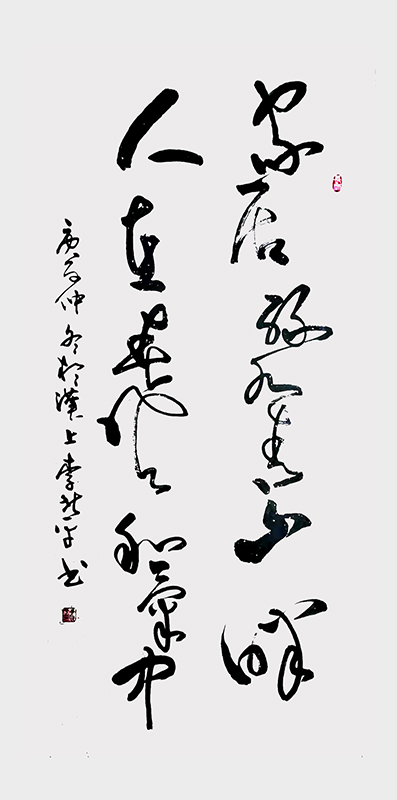 家居绿水青山畔
人在春风和气中
庚子仲冬於漢上李 书